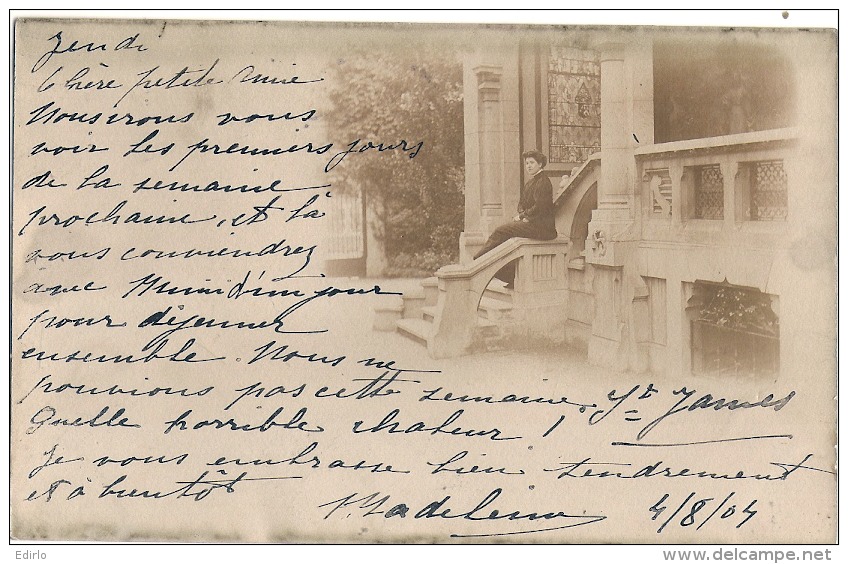 Jeudi
Chère petite Amie
Nous irons vous
voir les premiers jours
de la semaine
prochaine, et là
vous conviendrez
avec Mimi d'un jour
pour déjeuner
ensemble. Nous ne
pouvions pas cette semaine.
St James
Quelle horrible chaleur !
Je vous embrasse bien tendrement
et à bientôt
Madeleine
4/8/04
Edirlo
www.delcampe.net